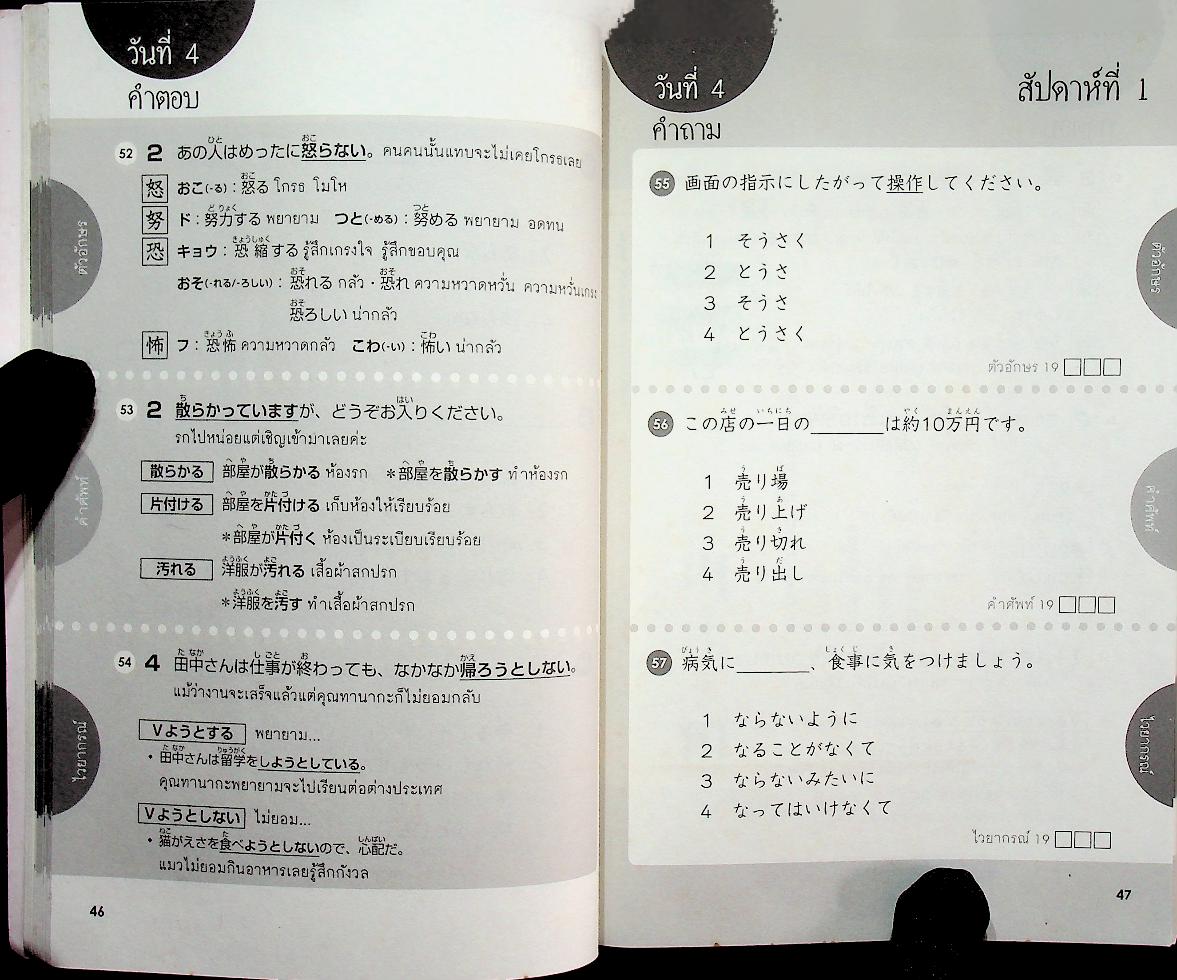 วันที่ 4
คำตอบ
52 2 あの人はめったに怒らない。คนคนนั้นแทบจะไม่เคยโกรธเลย
怒 おこ(-る) : 怒る โกรธ โมโห
努 ド : 努力する พยายาม つと(-める) : 努める พยายาม อดทน
恐 キョウ : 恐縮する รู้สึกเกรงใจ รู้สึกขอบคุณ
おそ(-れる/-ろしい) : 恐れる กลัว・恐れ ความหวาดหวั่น ความหวั่นเกรง
恐ろしい น่ากลัว
怖 フ : 恐怖 ความหวาดกลัว こわ(-い) : 怖い น่ากลัว
ตัวอักษร
53 2 散らかっていますが、どうぞお入りください。
รกไปหน่อยแต่เชิญเข้ามาเลยค่ะ
散らかる 部屋が散らかる ห้องรก *部屋を散らかす ทำห้องรก
片付ける 部屋を片付ける เก็บห้องให้เรียบร้อย
*部屋が片付く ห้องเป็นระเบียบเรียบร้อย
汚れる 洋服が汚れる เสื้อผ้าสกปรก
*洋服を汚す ทำเสื้อผ้าสกปรก
คำศัพท์
54 4 田中さんは仕事が終わっても、なかなか帰ろうとしない。
แม้ว่างานจะเสร็จแล้วแต่คุณทานากะก็ไม่ยอมกลับ
Vようとする พยายาม...
・田中さんは留学をしようとしている。
คุณทานากะพยายามจะไปเรียนต่อต่างประเทศ
Vようとしない ไม่ยอม...
・猫がえさを食べようとしないので、心配だ。
แมวไม่ยอมกินอาหารเลยรู้สึกกังวล
ไวยากรณ์
46
วันที่ 4
สัปดาห์ที่ 1
คำถาม
55 画面の指示にしたがって操作してください。
1 そうさく
2 とうさ
3 そうさ
4 とうさく
ตัวอักษร 19
ตัวอักษร
56 この店の一日の________は約10万円です。
1 売り場
2 売り上げ
3 売り切れ
4 売り出し
คำศัพท์ 19
คำศัพท์
57 病気に________、食事に気をつけましょう。
1 ならないように
2 なることがなくて
3 ならないみたいに
4 なってはいけなくて
ไวยากรณ์ 19
ไวยากรณ์
47